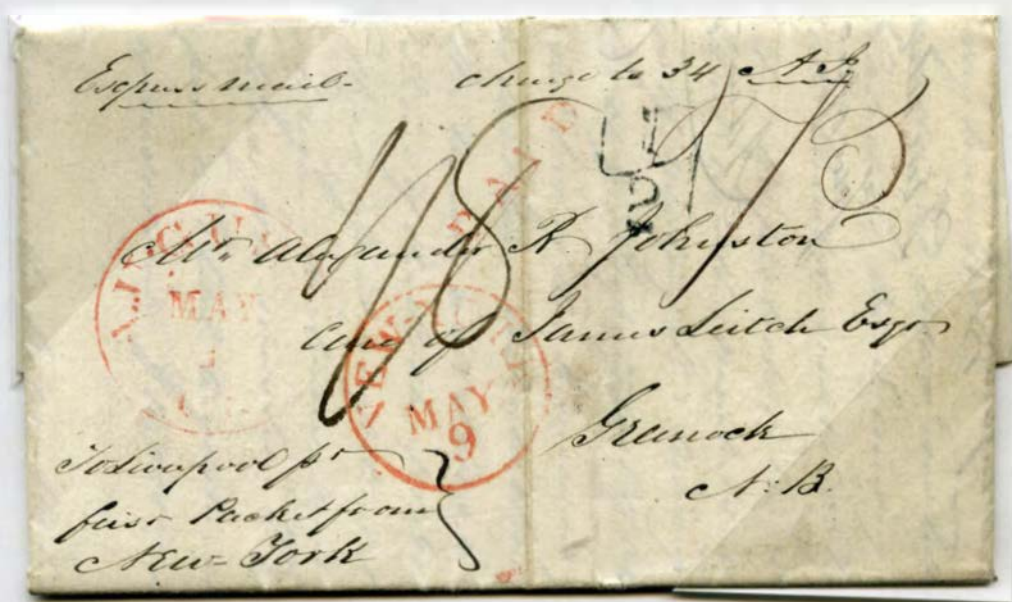 Express mail - charge to 34
PAID
Mr. Alexander R. Johnston
Care of James Leitch Esqr.
Greenock
N: B.
MAY
NEW-YORK
MAY
9
To Liverpool pr
first Packet from
New-York